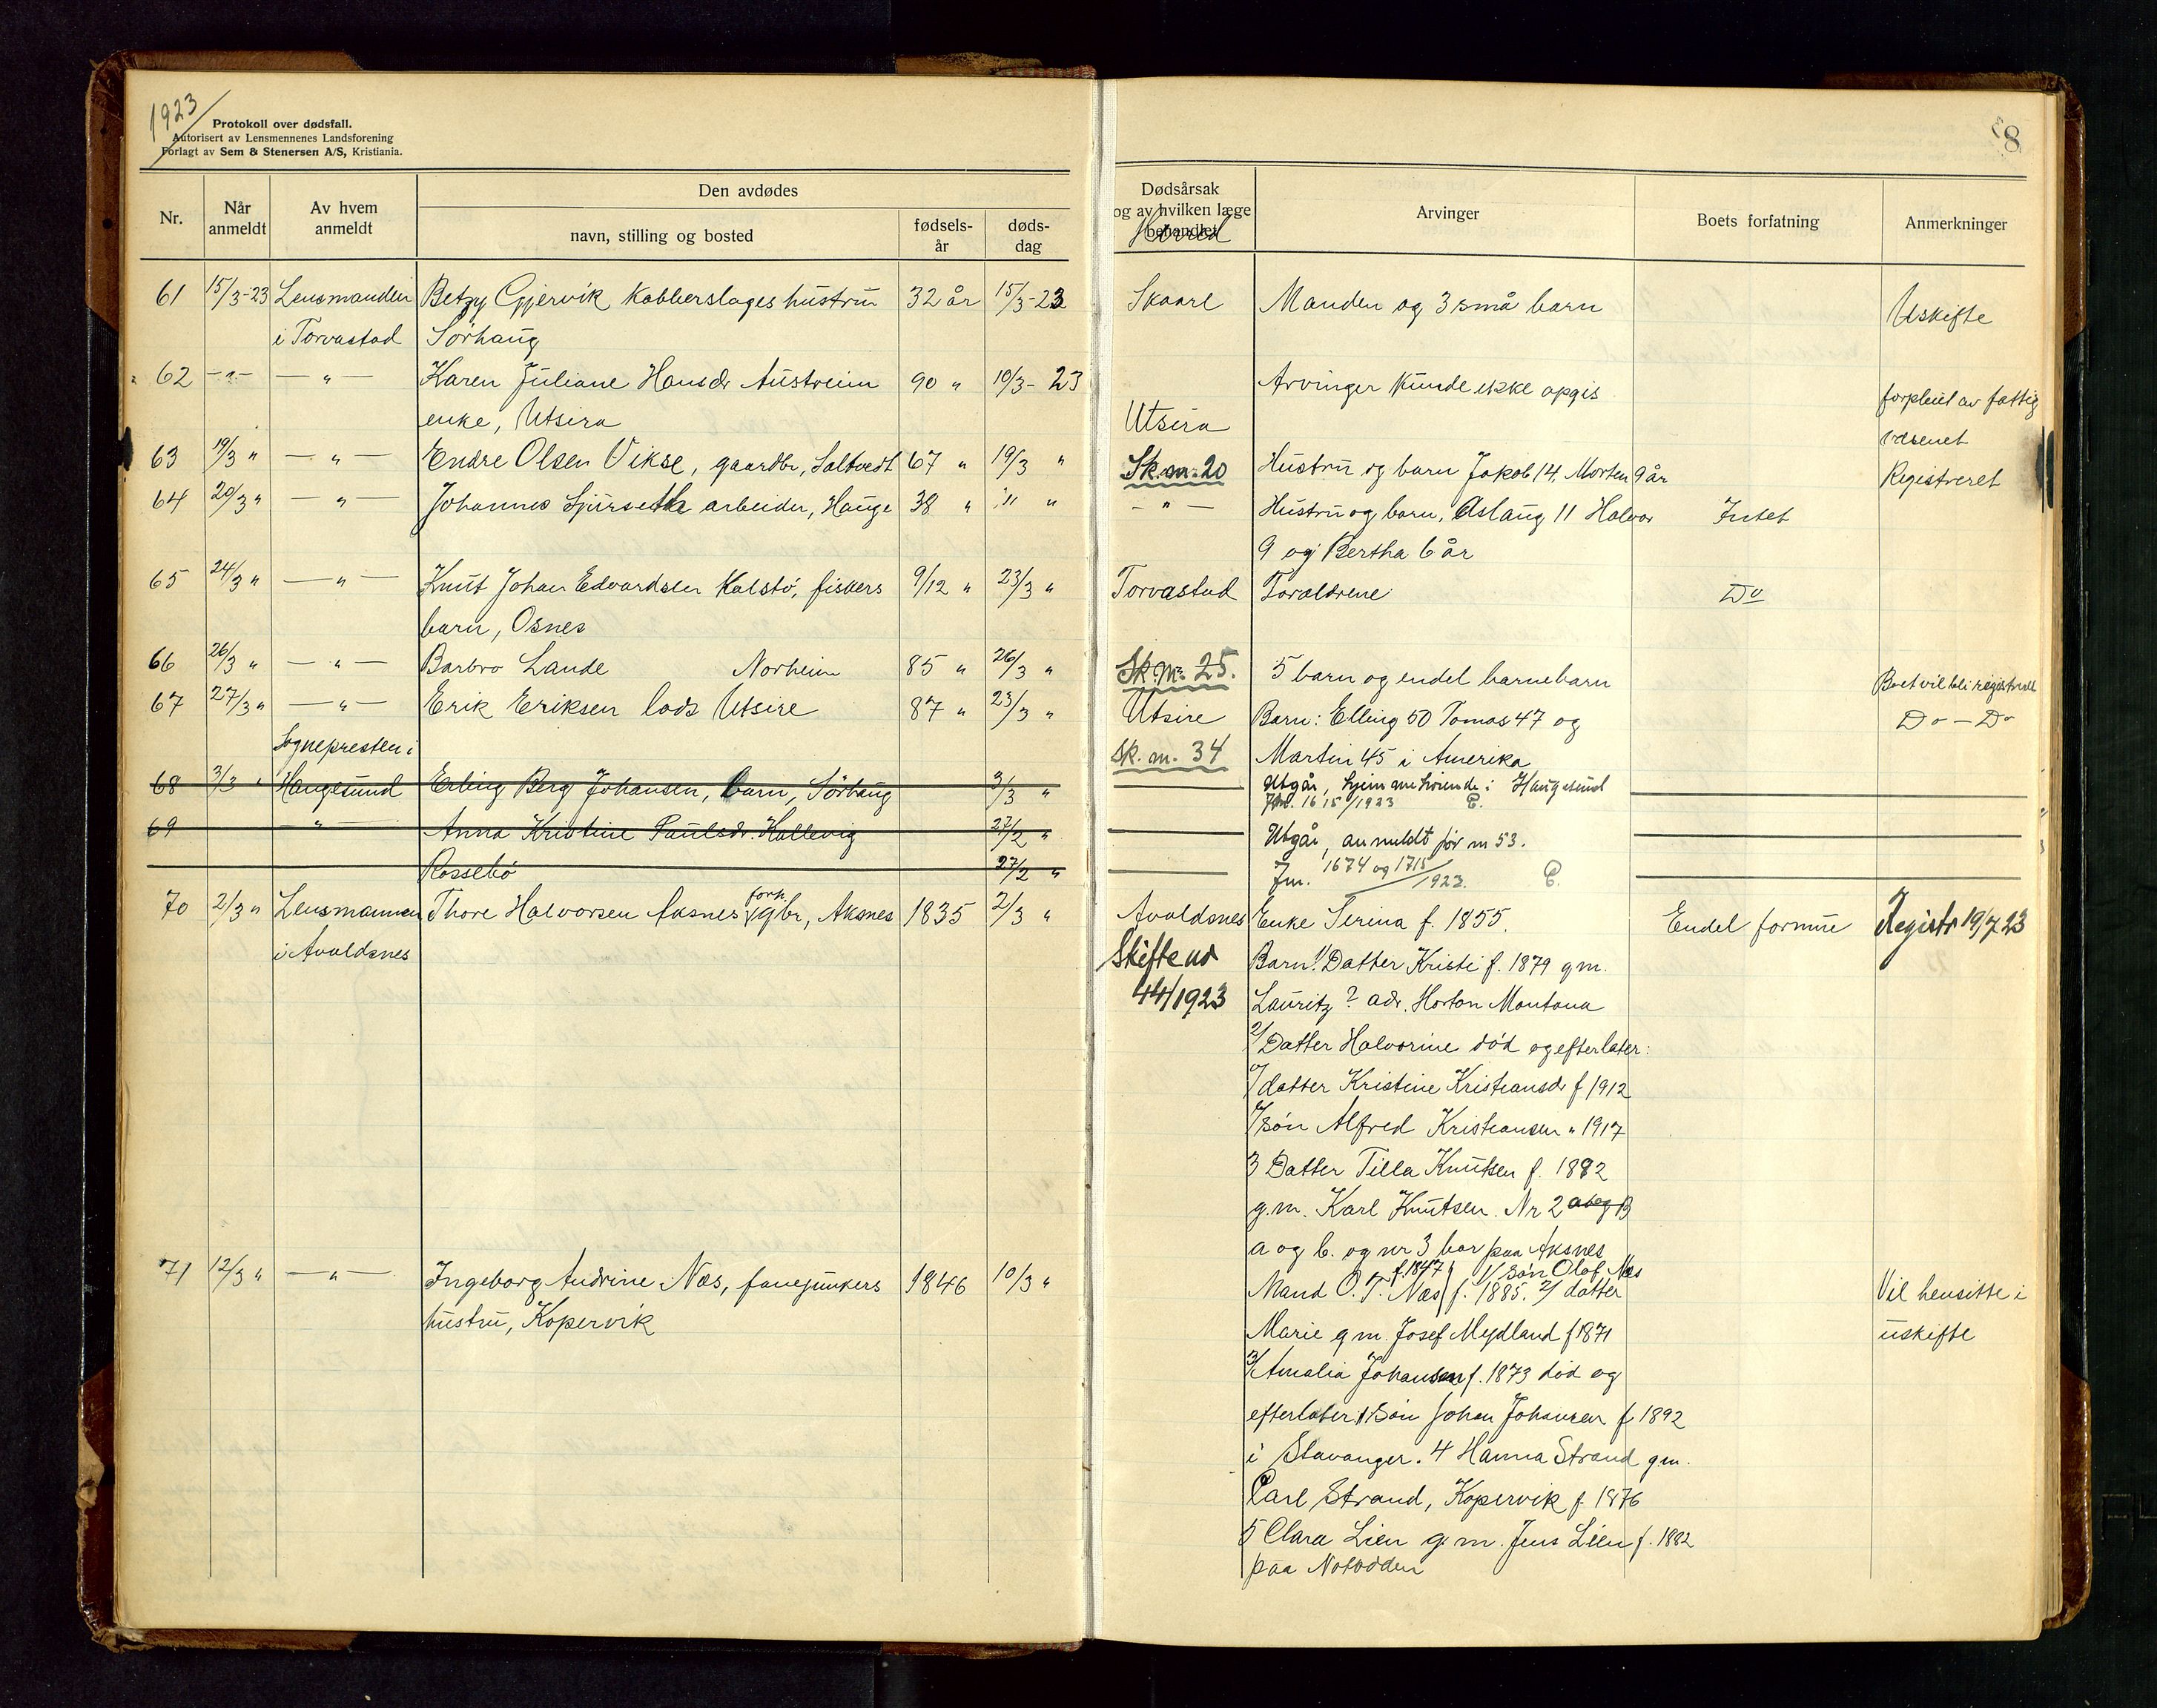 1923
Protokoll over dødsfall.
Autorisert av Lensmennenes Landsforening
Forlagt av Sem & Stenersen A/S, Kristiania.
8
Nr. Når anmeldt Av hvem anmeldt Den avdødes navn, stilling og bosted fødsels-år døds-dag Dødsårsak og av hvilken læge behandlet Herred Arvinger Boets forfatning Anmerkninger
61 15/3-23 Lensmanden Betzy Gjervik Kobberslages hustru 32 år 15/3-23 Skaare Manden og 3 små barn Uskifte
i Torvastad Sørhaug
62 -"- -"- Karen Juliane Hansdr Austreim 90 " 10/3-23 Arvinger kunde ikke opgis forpleiet av fattig
enke, Utsira Utsira væsenet
63 19/3 " -"- Endre Olsen Vikse, gaardbr, Saltvedt 67 " 19/3 " Sk.m. 20 Hustru og barn Jakob 14, Morten 9 år Registreret
64 20/3 " -"- Johannes Sjurseth arbeider, Hauge 38 " " " -"- Hustru og barn, Aslaug 11 Halvor Intet
9 og Bertha 6 år
65 24/3 " -"- Knut Johan Edvardsen Kalstø, fiskers 9/12 " 23/3 " Torvastad Forældrene Do
barn, Osnes
66 26/3 " -"- Barbro Lande Norheim 85 " 26/3 " Sk.m. 25. 5 barn og endel barnebarn Boet vil bli registreret
67 27/3 " -"- Erik Eriksen lods Utsire 87 " 23/3 " Utsire Barn: Elling 50 Tomas 47 og Do - Do
Sognepresten i Sk. m. 34 Martin 45 i Amerika
68 3/3 " Haugesund Erling Berg Johansen, barn, Sørhaug 3/3 " Utgår, hjemmehørende i Haugesund
Jm. 1615/1923 E.
69 " Anna Kristine Paulsdr. Kallevig 27/2 " Utgår, anmeldt før nr 53.
Rossebø 27/2 " Jm. 1674 og 1715/1923. E.
70 2/3 " Lensmannen Thore Halvorsen Aksnes forh. gbr, Aksnes 1835 2/3 " Avaldsnes Enke Serina f. 1855. Endel formue Registr 19/7 23
i Avaldsnes Skifte nr Barn: 1/ Datter Kristi f. 1879 g.m.
44/1923 Lauritz ? adr. Horton Montana
2/ Datter Halvorine død og efterlater:
a/ datter Kristine Kristiansdr f 1912
b/ søn Alfred Kristiansen " 1917
3 Datter Tilla Knutsen f. 1882
g.m. Karl Knutsen. Nr 2 a og B
a og b. og nr 3 bor paa Aksnes
71 12/3 " -"- Ingeborg Andrine Næs, fanejunkers 1846 10/3 " Mand O. T. Næs f. 1847 1/ søn Olaf Næs f. 1885. 2/ datter Vil hensitte i
hustru, Kopervik Marie g.m. Josef Mydland f 1871 uskifte
3/ Amalia Johansen f. 1873 død og
efterlater 1 søn Johan Johansen f 1892
i Stavanger. 4 Hanna Strand g.m.
Carl Strand, Kopervik f. 1876
5 Clara Lien g.m. Jens Lien f. 1882
paa Notodden